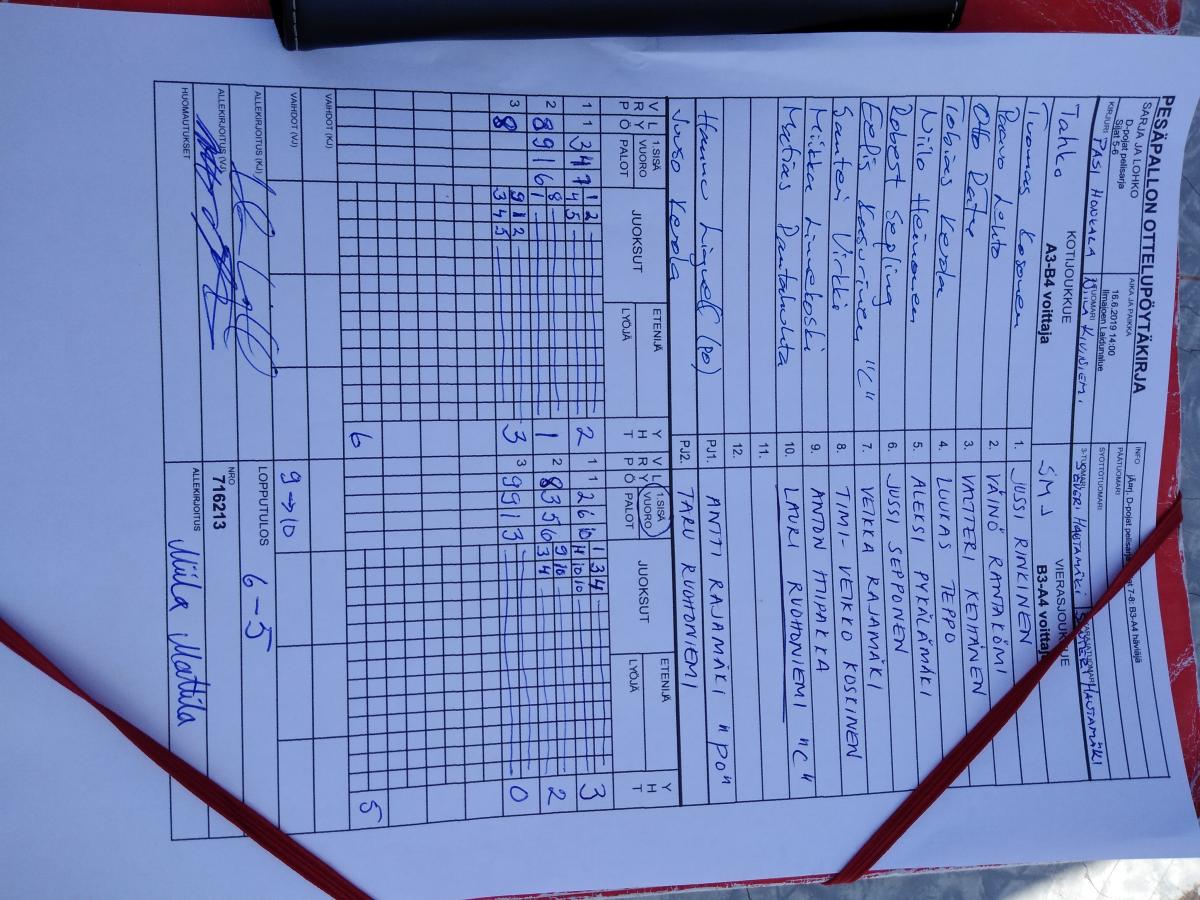 PESÄPALLON OTTELUPÖYTÄKIRJA
SARJA JA LOHKO
D-pojat pelisarja
Sijat 5-6
AIKA JA PAIKKA
16.6.2019 14:00
Ilmajoen Laidunalue
INFO
PÄÄTUOMARI
SYÖTTÖTUOMARI
KIRJURI PASI HONKALA
2-TUOMARI NIINA KIVINIEMI
3-TUOMARI SEVERI HAUTAMÄKI
Tahko
KOTIJOUKKUE
A3-B4 voittaja
SMJ
VIERASJOUKKUE
B3-A4 voittaja
Tuomas Kosonen
1. JUSSI RINKINEN
Paavo Lehto
2. VÄINÖ RANTAKÖMI
Otto
3. VALTTERI KEIHÄNEN
Tobias Kerola
4. LUUKAS TEPPO
Niilo Heinonen
5. ALEKSI PYKÄLÄMÄKI
Robert Sepling
6. JUSSI SEPPONEN
Eelis Kasurinen "C"
7. VEIKKA RAJAMÄKI
Santeri Virkki
8. TIMI-VEIKKO KOSKINEN
Miikka Linnakoski
9. ANTON HIIPAKKA
Matias Rantaluhta
10. LAURI RUOHONIEMI "C"
11.
12.
Hannu Lignell (PO)
PJ1. ANTTI RAJAMÄKI "PO"
Juuso Kerola
PJ2. TARU RUOHONIEMI
V R P
L Y Ö
1.SISÄ VUORO PALOT
JUOKSUT
ETENIJÄ
LYÖJÄ
Y H T
V R P
L Y Ö
1.SISÄ VUORO PALOT
JUOKSUT
ETENIJÄ
LYÖJÄ
Y H T
1 1 3 4 7 1 2 4 5 2
1 1 2 6 10 1 3 4 4 10 10 3
2 8 9 1 6 8 1 1
2 8 3 5 6 9 10 3 4 2
3 8 9 1 2 3 4 5 3
3 9 9 1 3 0
6
5
VAIHDOT (KJ)
VAIHDOT (VJ)
9→10
ALLEKIRJOITUS (KJ)
LOPPUTULOS 6-5
ALLEKIRJOITUS (VJ)
NRO
716213
HUOMAUTUKSET
ALLEKIRJOITUS Miila Mattila